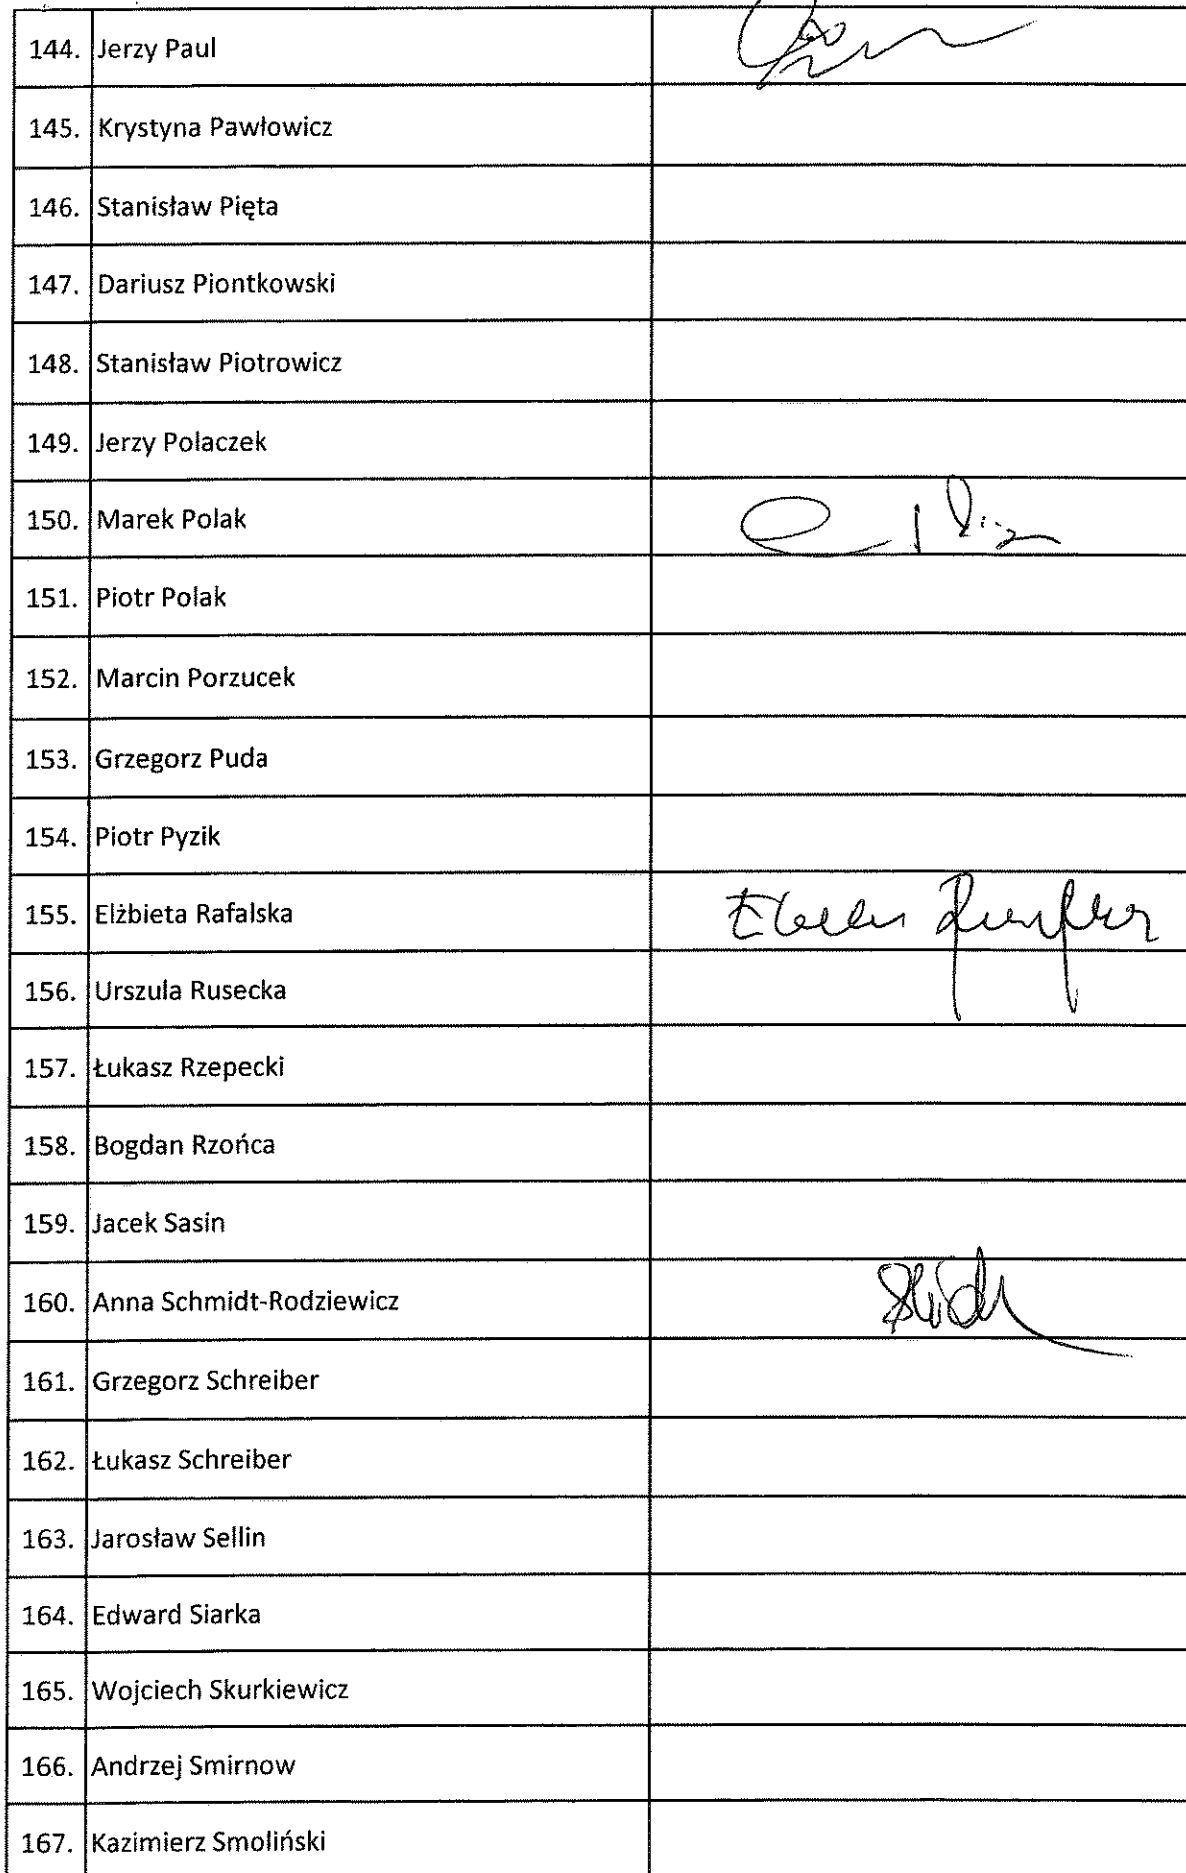 144. Jerzy Paul
145. Krystyna Pawłowicz
146. Stanisław Pięta
147. Dariusz Piontkowski
148. Stanisław Piotrowicz
149. Jerzy Polaczek
150. Marek Polak
151. Piotr Polak
152. Marcin Porzucek
153. Grzegorz Puda
154. Piotr Pyzik
155. Elżbieta Rafalska
156. Urszula Rusecka
157. Łukasz Rzepecki
158. Bogdan Rzońca
159. Jacek Sasin
160. Anna Schmidt-Rodziewicz
161. Grzegorz Schreiber
162. Łukasz Schreiber
163. Jarosław Sellin
164. Edward Siarka
165. Wojciech Skurkiewicz
166. Andrzej Smirnow
167. Kazimierz Smoliński